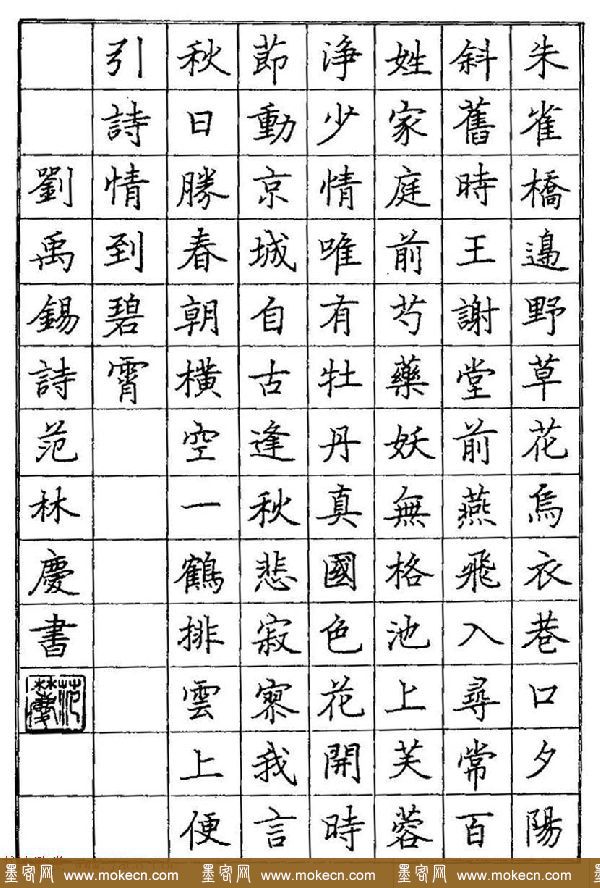 朱雀橋邊野草花烏衣巷口夕陽
斜舊時王謝堂前燕飛入尋常百
姓家庭前芍藥妖無格池上芙蓉
淨少情唯有牡丹真國色花開時
節動京城自古逢秋悲寂寥我言
秋日勝春朝橫空一鶴排雲上便
引詩情到碧霄
劉禹錫詩范林慶書
墨客网 www.mokecn.com 墨客网 www.mokecn.com 墨客网 www.mokecn.com